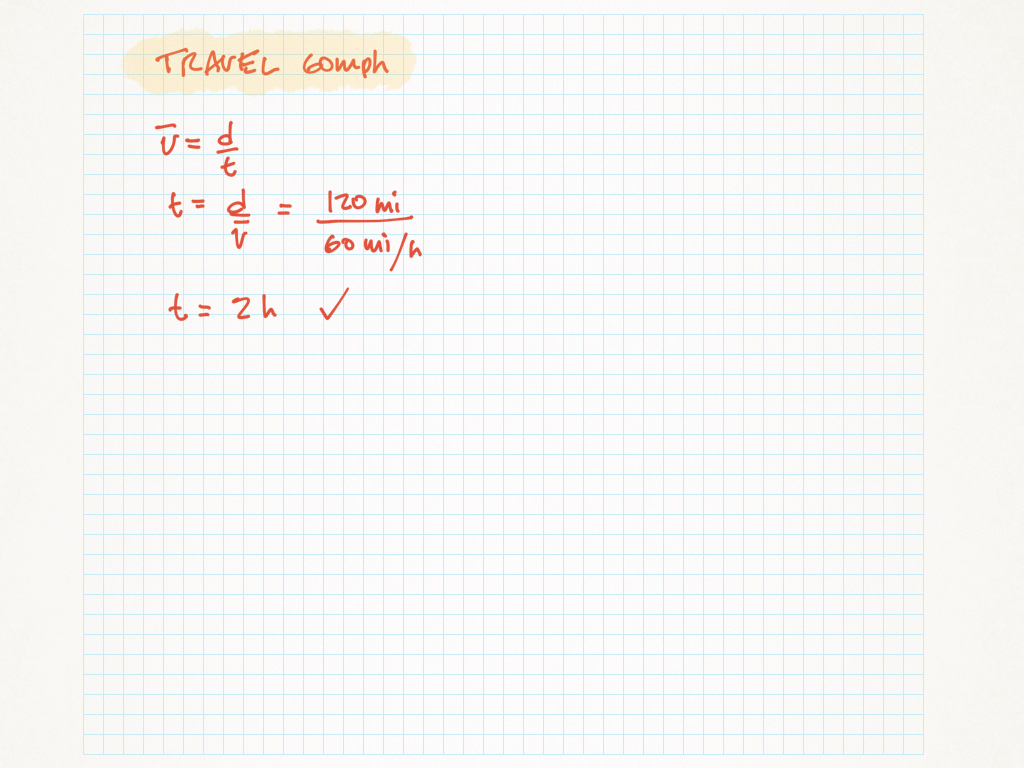 TRAVEL 60mph
v̄ = d/t
t = d/v̄ = 120 mi / 60 mi/h
t = 2 h ✓